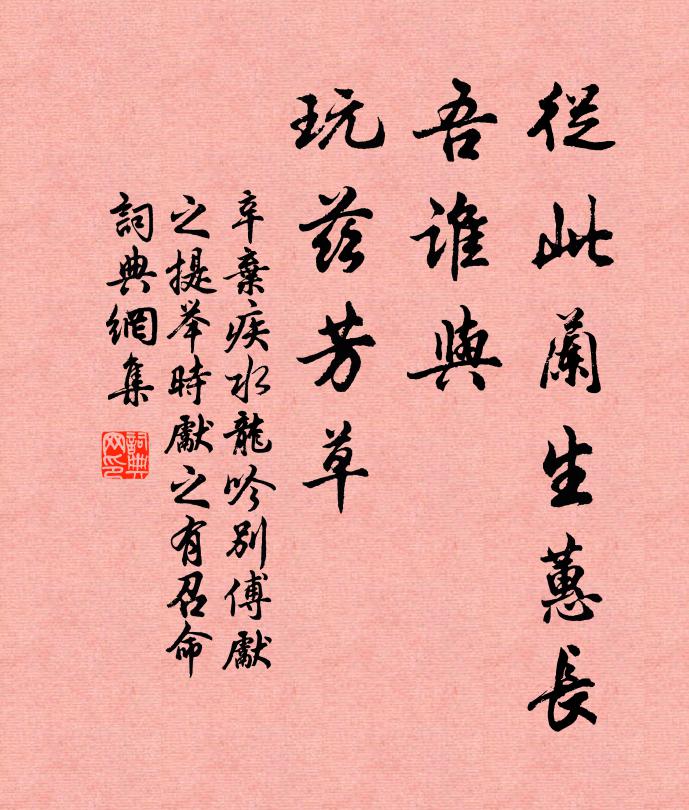 從此蘭生蕙長
吾誰與
玩茲芳草
辛棄疾水龍吟別傅獻
之提举時獻之有召命
詞典網集
詞典
网印